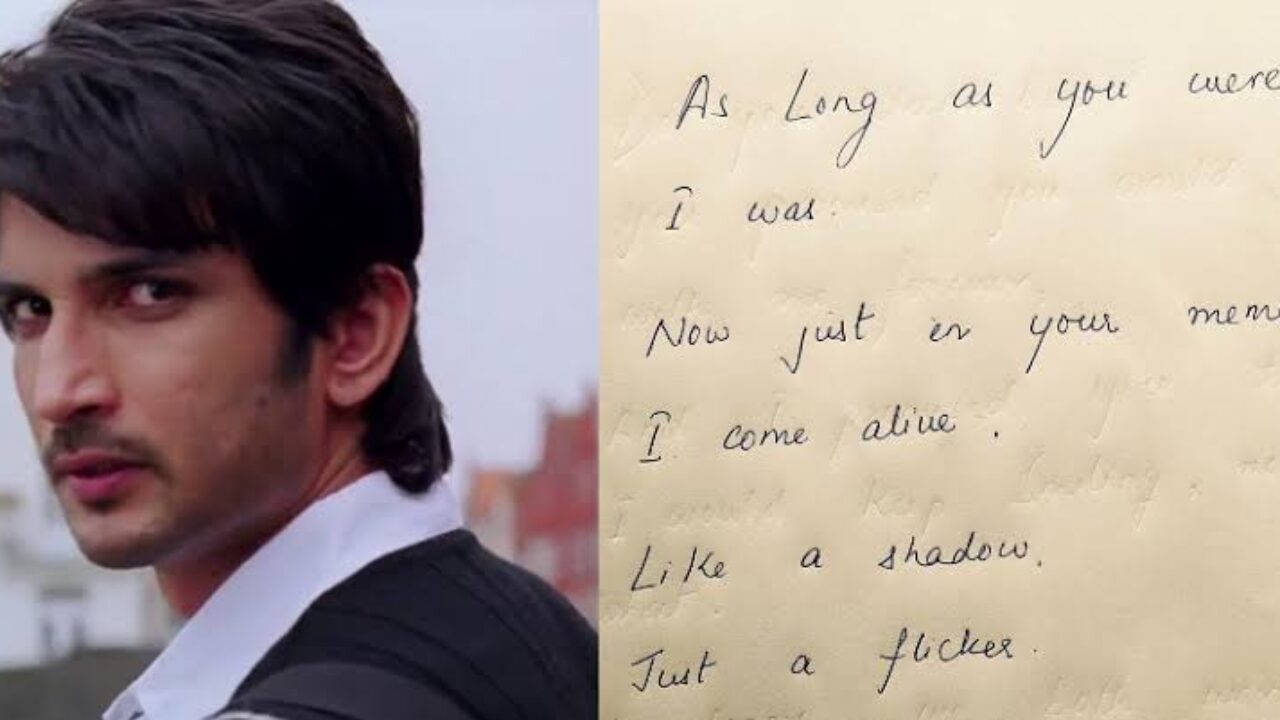 As Long as you were
I was.
Now just in your mem
I come alive.
Like a shadow.
Just a flicker.